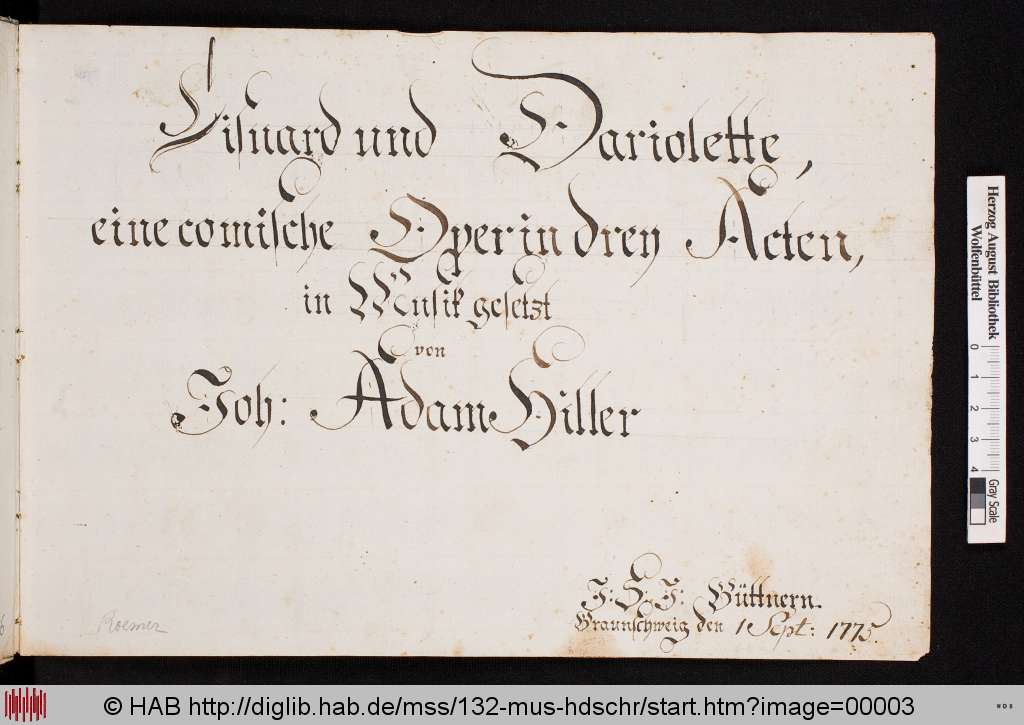 Lisuard und Dariolette,
eine comische Oper in drey Acten,
in Musik gesetzt
von
Joh: Adam Hiller
J: H: J: Büttnern.
Braunschweig den 1 Sept: 1775.
Roemer
Herzog August Bibliothek
Wolfenbüttel
0 1 2 3 4
Gray Scale
© HAB http://diglib.hab.de/mss/132-mus-hdschr/start.htm?image=00003